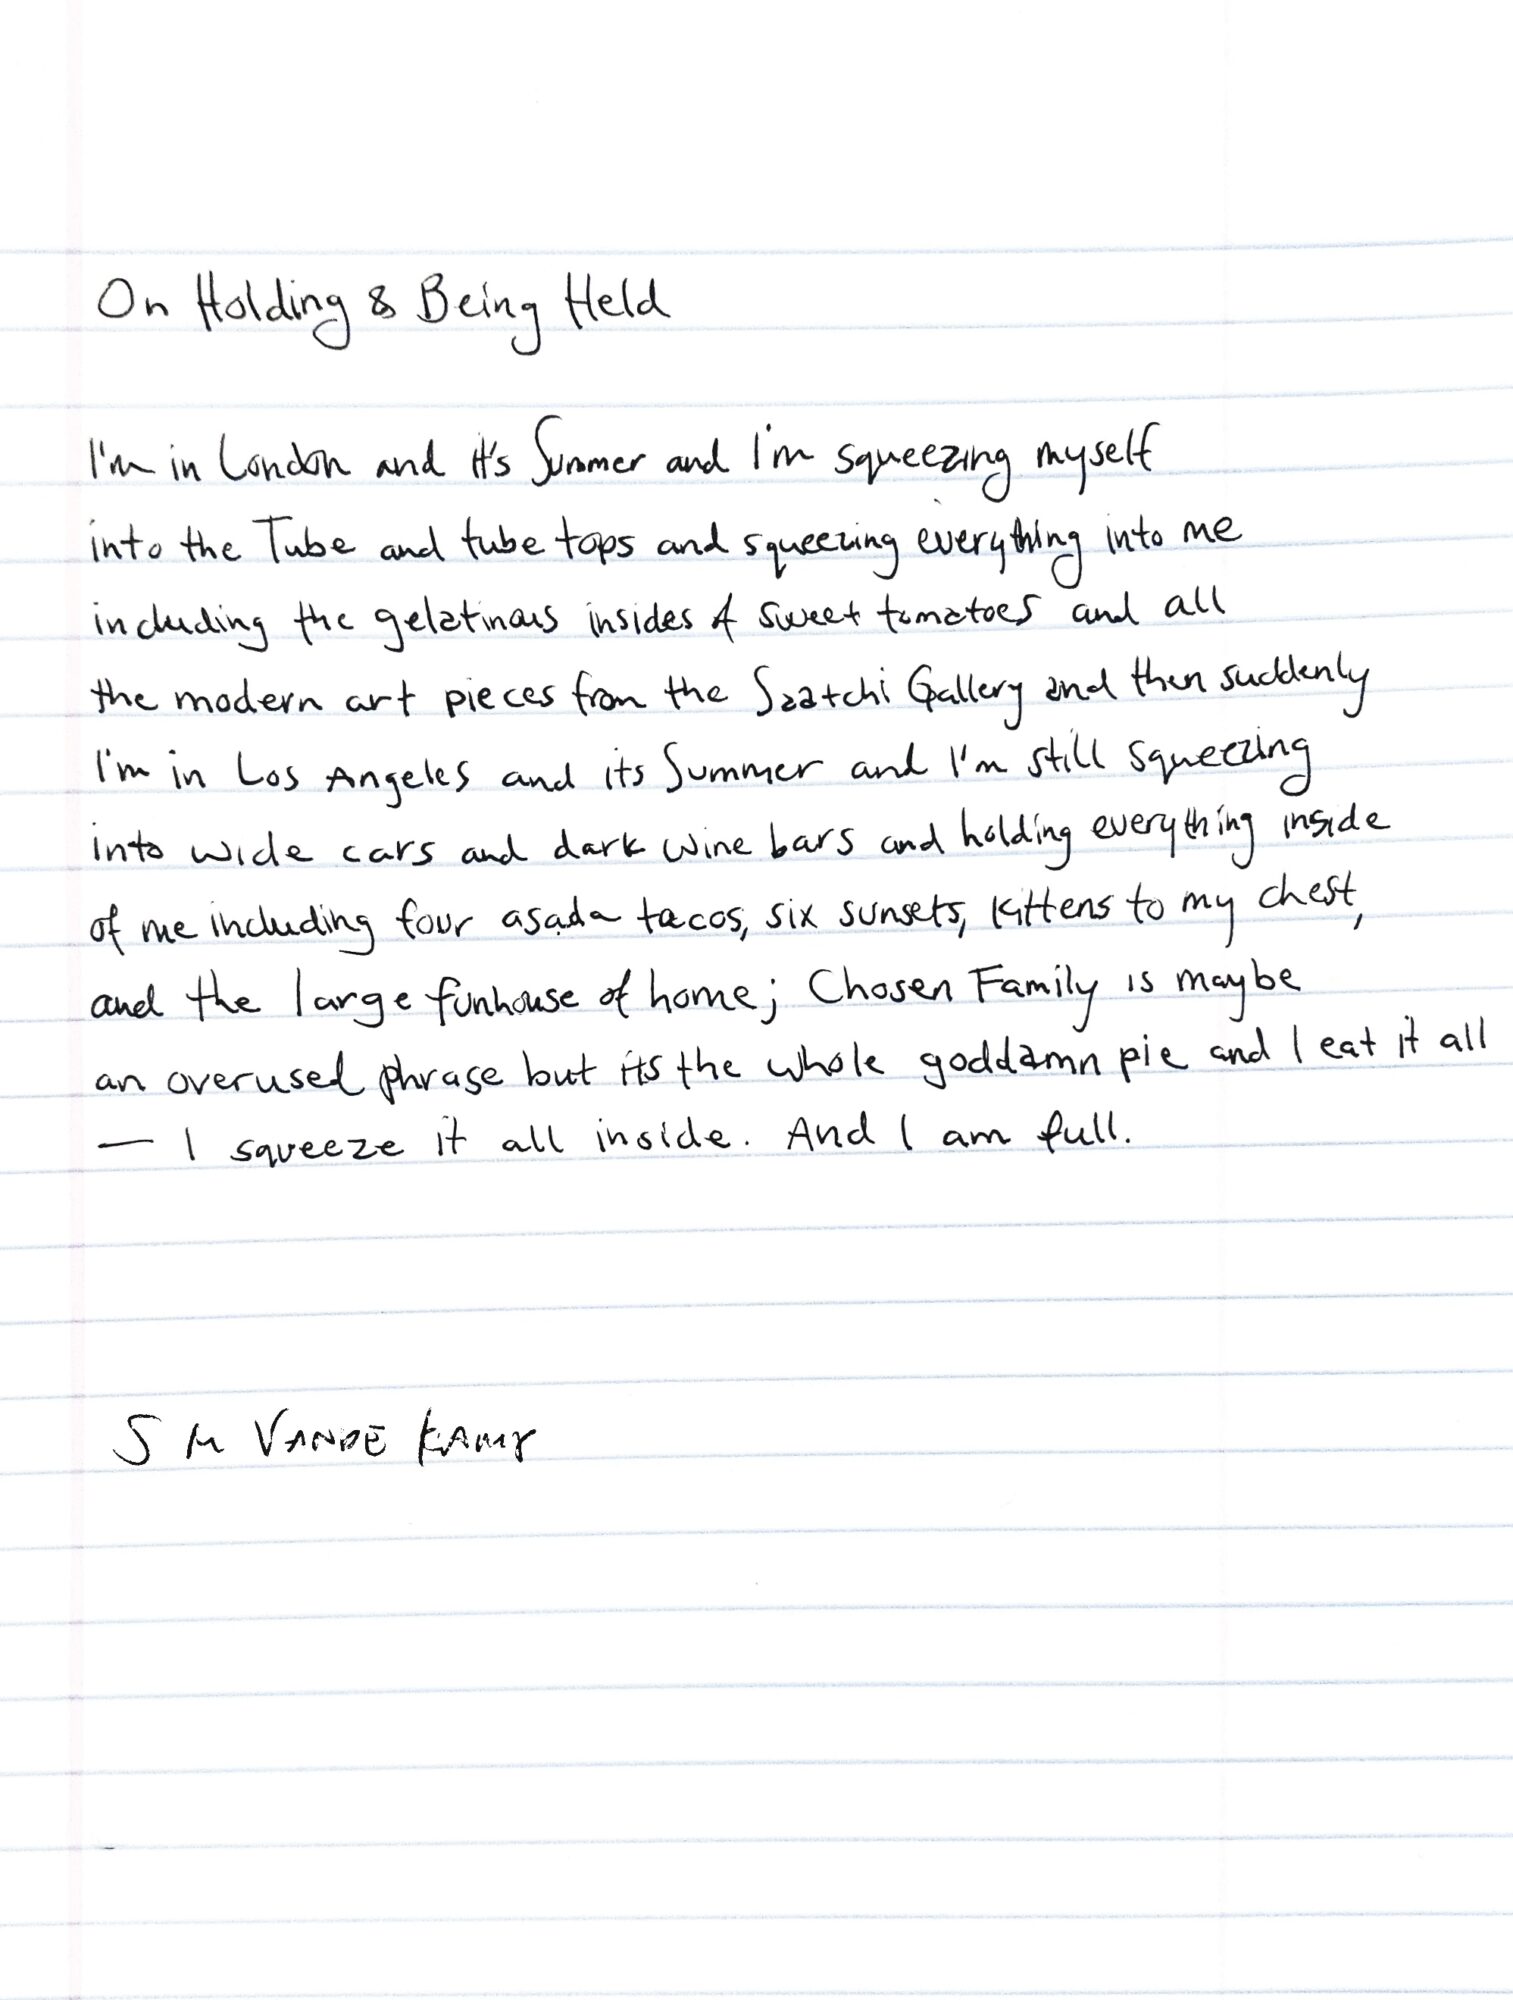 On Holding & Being Held
I'm in London and it's Summer and I'm squeezing myself
into the Tube and tube tops and squeezing everything into me
including the gelatinous insides of sweet tomatoes and all
the modern art pieces from the Saatchi Gallery and then suddenly
I'm in Los Angeles and its Summer and I'm still squeezing
into wide cars and dark wine bars and holding everything inside
of me including four asada tacos, six sunsets, kittens to my chest,
and the large funhouse of home; Chosen Family is maybe
an overused phrase but its the whole goddamn pie and I eat it all
— I squeeze it all inside. And I am full.
S M VANDE KAMP